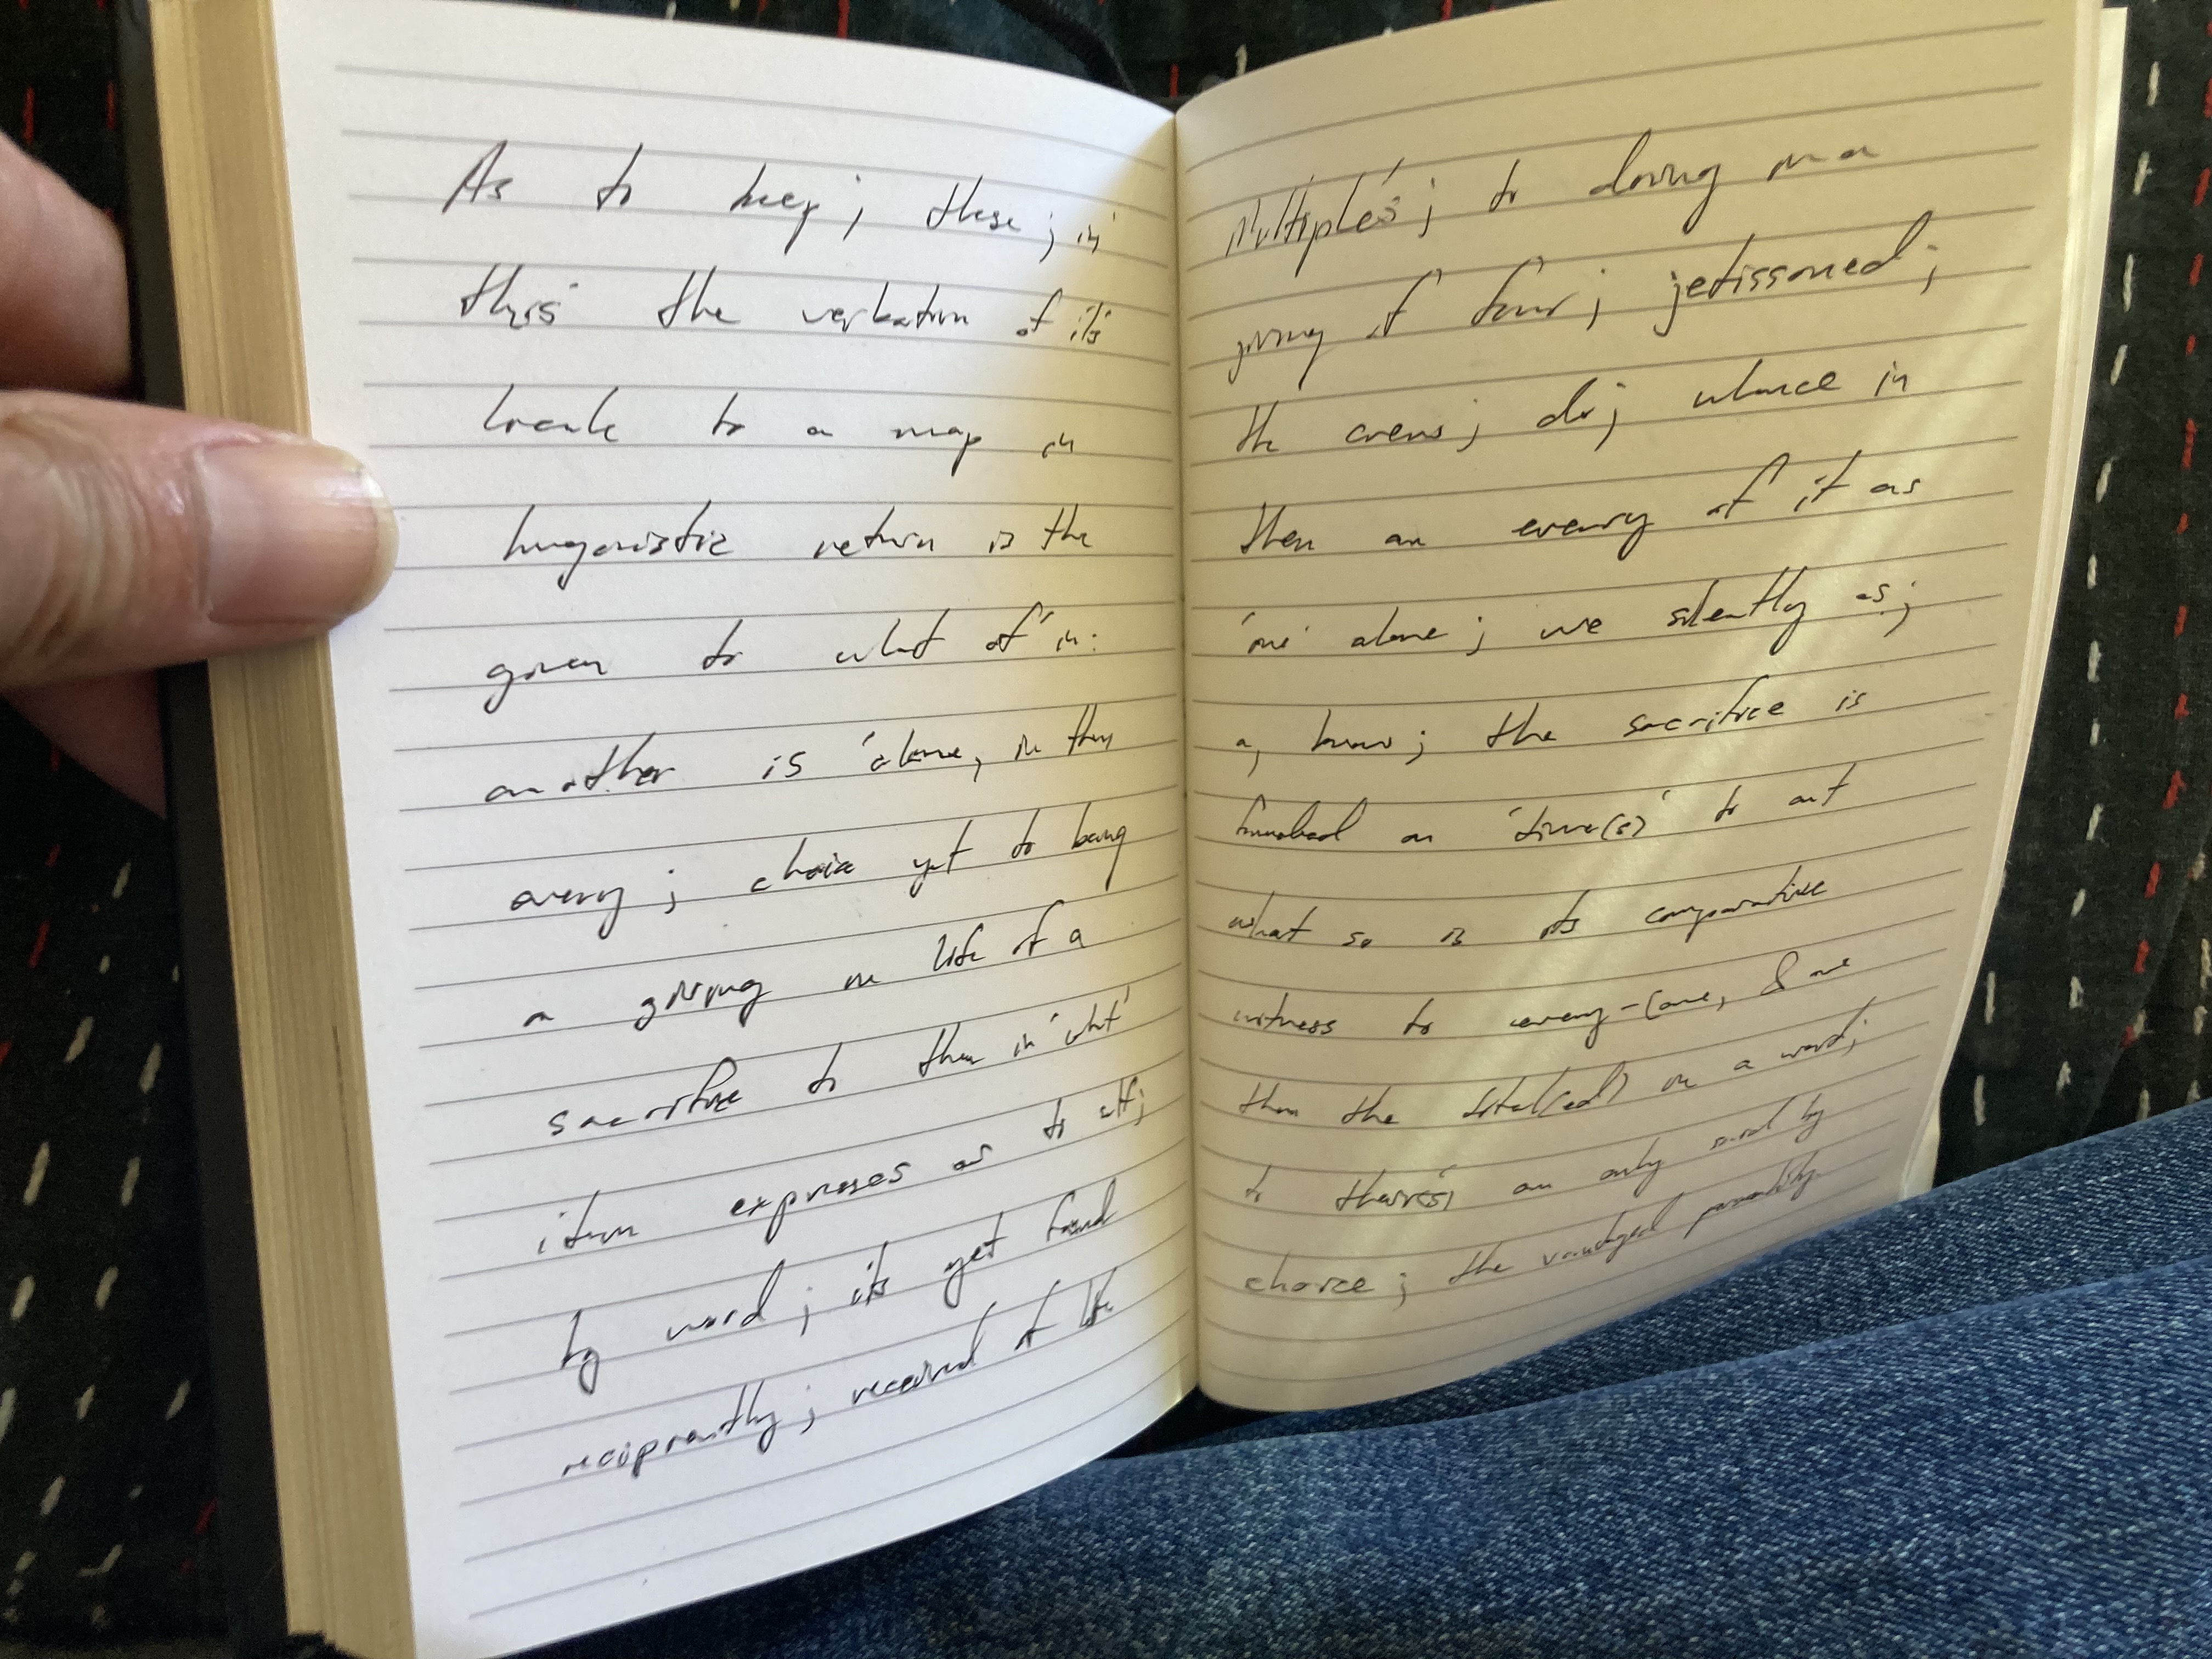 As to keep; these; in
this' the verbatim of 'its'
locale to a map in
return is the
given to what of 'in:
another is 'alone, in then
every; choice yet to being
a giving in life of a
sacrifice to them in 'what'
item expresses as to
by word; its yet found
received of life
Multiples'; to doing in a
giving of four; jetissoned;
the crews; do; whence in
then an every of it as
'one' alone; we silently as;
a, know; the sacrifice is
on 'time(s)' to out
what so is its comparative
witness to every-(one, & we
then the in a word;
to an only by
choice; the